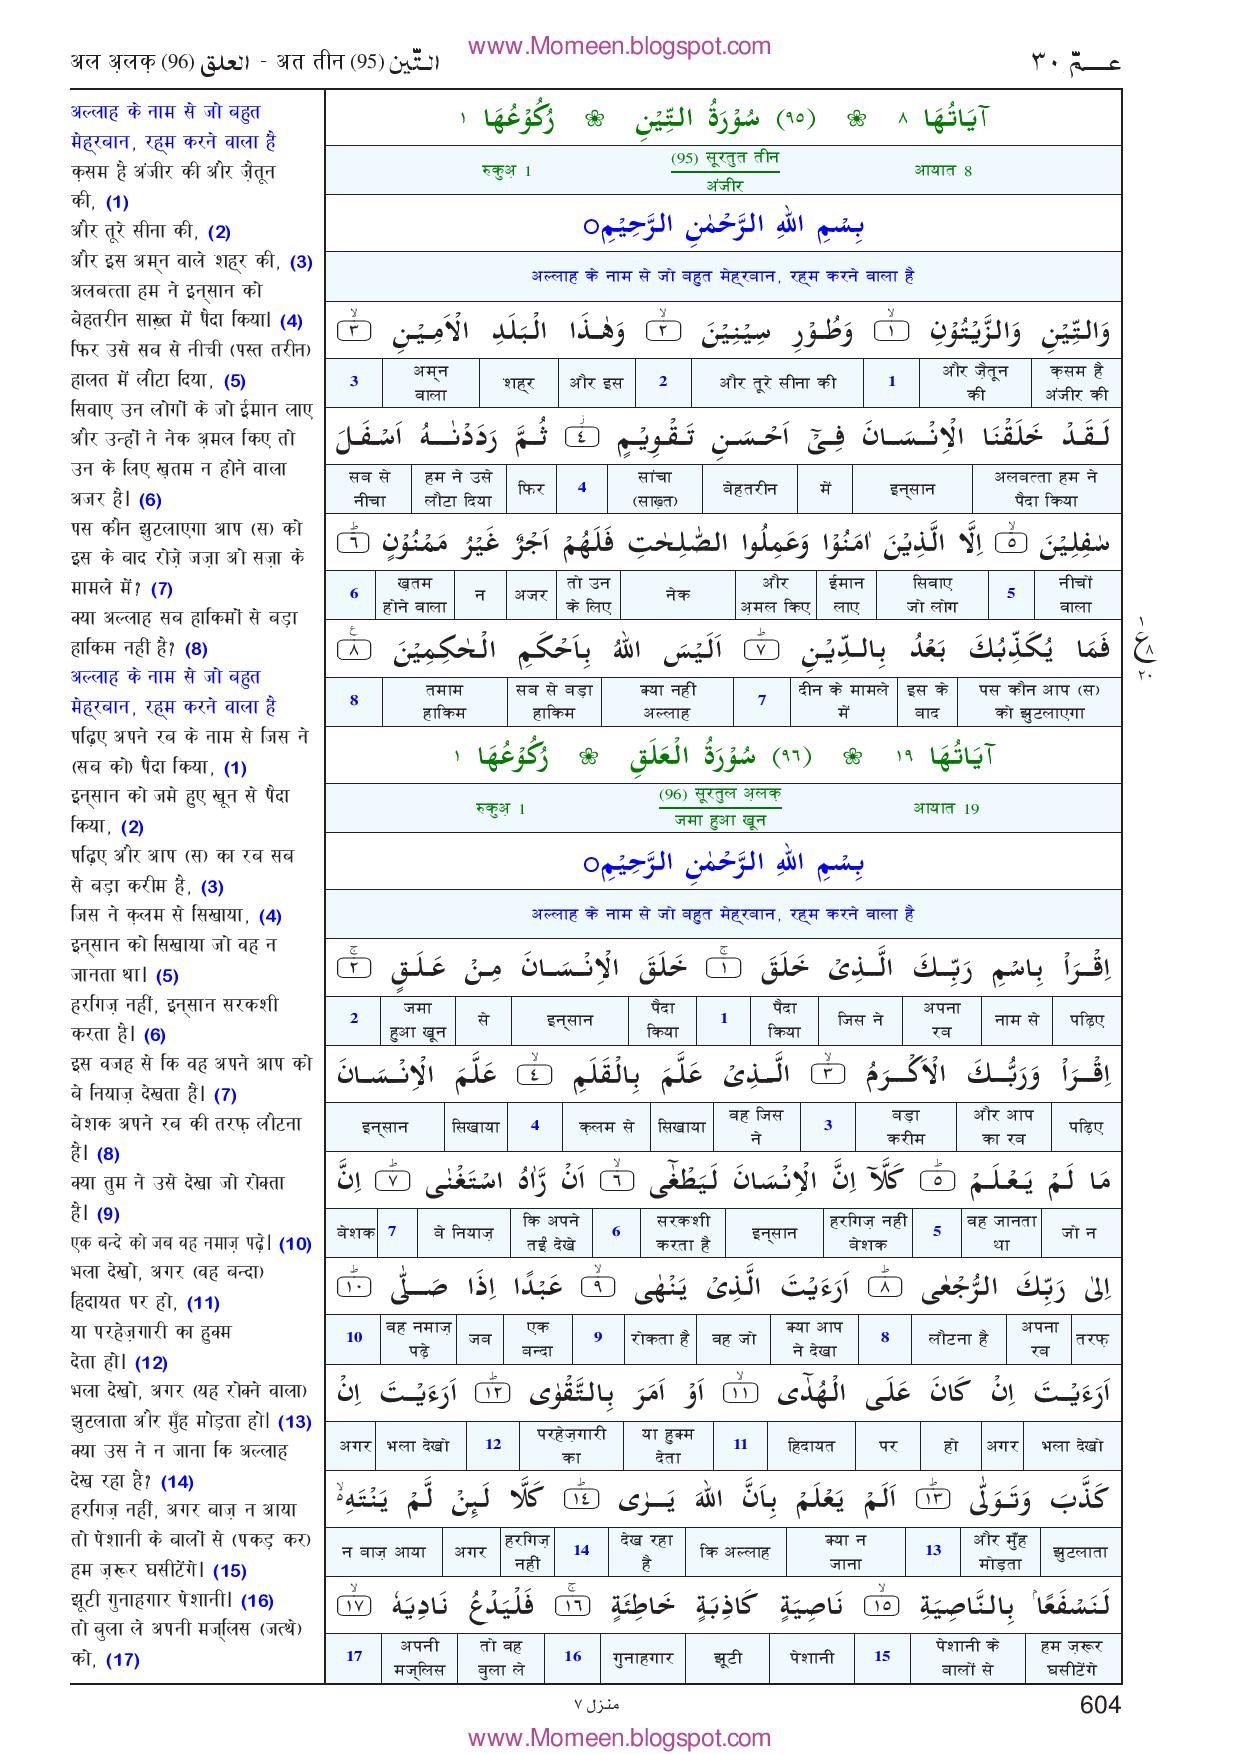 www.Momeen.blogspot.com
अल अ़लक़ (96) العلق - अत तीन (95) التّين
عـــمّ ٣٠
अल्लाह के नाम से जो बहुत
मेह्‌रबान, रह्‌म करने वाला है
क़सम है अंजीर की और ज़ैतून
की, (1)
और तूरे सीना की, (2)
और इस अम्‌न वाले शह्‌र की, (3)
अलबत्ता हम ने इन्‌सान को
बेहतरीन साख़्त में पैदा किया। (4)
फिर उसे सब से नीची (पस्त तरीन)
हालत में लौटा दिया, (5)
सिवाए उन लोगों के जो ईमान लाए
और उन्हों ने नेक अ़मल किए तो
उन के लिए ख़तम न होने वाला
अजर है। (6)
पस कौन झुटलाएगा आप (स) को
इस के बाद रोज़े जज़ा ओ सज़ा के
मामले में? (7)
क्या अल्लाह सब हाकिमों से बड़ा
हाकिम नहीं है? (8)
अल्लाह के नाम से जो बहुत
मेह्‌रबान, रह्‌म करने वाला है
पढ़िए अपने रब के नाम से जिस ने
(सब को) पैदा किया, (1)
इन्‌सान को जमे हुए ख़ून से पैदा
किया, (2)
पढ़िए और आप (स) का रब सब
से बड़ा करीम है, (3)
जिस ने क़लम से सिखाया, (4)
इन्‌सान को सिखाया जो वह न
जानता था। (5)
हरगिज़ नहीं, इन्‌सान सरकशी
करता है। (6)
इस वजह से कि वह अपने आप को
बे नियाज़ देखता है। (7)
बेशक अपने रब की तरफ़ लौटना
है। (8)
क्या तुम ने उसे देखा जो रोक्ता
है। (9)
एक बन्दे को जब वह नमाज़ पढ़े। (10)
भला देखो, अगर (वह बन्दा)
हिदायत पर हो, (11)
या परहेज़गारी का हुक्म
देता हो। (12)
भला देखो, अगर (यह रोक्ने वाला)
झुटलाता और मुँह मोड़ता हो। (13)
क्या उस ने न जाना कि अल्लाह
देख रहा है? (14)
हरगिज़ नहीं, अगर बाज़ न आया
तो पेशानी के बालों से (पकड़ कर)
हम ज़रूर घसीटेंगे। (15)
झूटी गुनाहगार पेशानी। (16)
तो बुला ले अपनी मज्‌लिस (जत्थे)
को, (17)
آيَاتُهَا ٨ ❀ (٩٥) سُوْرَةُ التِّيْنِ ❀ رُكُوْعُهَا ١
रुकुअ़ 1 (95) सूरतुत तीन आयात 8
अंजीर
بِسْمِ اللهِ الرَّحْمٰنِ الرَّحِيْمِ○
अल्लाह के नाम से जो बहुत मेह्‌रबान, रह्‌म करने वाला है
وَالتِّيْنِ وَالزَّيْتُوْنِ ۙ ١ وَطُوْرِ سِيْنِيْنَ ۙ ٢ وَهٰذَا الْبَلَدِ الْاَمِيْنِ ۙ ٣
3 अम्‌न शह्‌र और इस 2 और तूरे सीना की 1 और ज़ैतून क़सम है
वाला की अंजीर की
لَقَدْ خَلَقْنَا الْاِنْسَانَ فِيْٓ اَحْسَنِ تَقْوِيْمٍ ۡ ٤ ثُمَّ رَدَدْنٰهُ اَسْفَلَ
सब से हम ने उसे फिर 4 सांचा बेहतरीन में इन्‌सान अलबत्ता हम ने
नीचा लौटा दिया (साख़्त) पैदा किया
سٰفِلِيْنَ ۙ ٥ اِلَّا الَّذِيْنَ اٰمَنُوْا وَعَمِلُوا الصّٰلِحٰتِ فَلَهُمْ اَجْرٌ غَيْرُ مَمْنُوْنٍ ؕ ٦
6 ख़तम न अजर तो उन नेक और ईमान सिवाए 5 नीचों
होने वाला के लिए अ़मल किए लाए जो लोग वाला
فَمَا يُكَذِّبُكَ بَعْدُ بِالدِّيْنِ ؕ ٧ اَلَيْسَ اللهُ بِاَحْكَمِ الْحٰكِمِيْنَ ٨
١ ع ٨ ٢٠
8 तमाम सब से बड़ा क्या नहीं 7 दीन के मामले इस के पस कौन आप (स)
हाकिम हाकिम अल्लाह में बाद को झुटलाएगा
آيَاتُهَا ١٩ ❀ (٩٦) سُوْرَةُ الْعَلَقِ ❀ رُكُوْعُهَا ١
रुकुअ़ 1 (96) सूरतुल अ़लक़ आयात 19
जमा हुआ ख़ून
بِسْمِ اللهِ الرَّحْمٰنِ الرَّحِيْمِ○
अल्लाह के नाम से जो बहुत मेह्‌रबान, रह्‌म करने वाला है
اِقْرَاْ بِاسْمِ رَبِّكَ الَّذِيْ خَلَقَ ۚ ١ خَلَقَ الْاِنْسَانَ مِنْ عَلَقٍ ۚ ٢
2 जमा से इन्‌सान पैदा 1 पैदा जिस ने अपना नाम से पढ़िए
हुआ ख़ून किया किया रब
اِقْرَاْ وَرَبُّكَ الْاَكْرَمُ ۙ ٣ الَّذِيْ عَلَّمَ بِالْقَلَمِ ۙ ٤ عَلَّمَ الْاِنْسَانَ
इन्‌सान सिखाया 4 क़लम से सिखाया वह जिस 3 बड़ा और आप पढ़िए
ने करीम का रब
مَا لَمْ يَعْلَمْ ؕ ٥ كَلَّآ اِنَّ الْاِنْسَانَ لَيَطْغٰٓى ۙ ٦ اَنْ رَّاٰهُ اسْتَغْنٰى ؕ ٧ اِنَّ
बेशक 7 बे नियाज़ कि अपने 6 सरकशी इन्‌सान हरगिज़ नहीं 5 वह जानता जो न
तईं देखे करता है बेशक था
اِلٰى رَبِّكَ الرُّجْعٰى ؕ ٨ اَرَءَيْتَ الَّذِيْ يَنْهٰى ۙ ٩ عَبْدًا اِذَا صَلّٰى ؕ ١٠
10 वह नमाज़ जब एक 9 रोकता है वह जो क्या आप 8 लौटना है अपना तरफ़
पढ़े बन्दा ने देखा रब
اَرَءَيْتَ اِنْ كَانَ عَلَى الْهُدٰٓى ۙ ١١ اَوْ اَمَرَ بِالتَّقْوٰى ؕ ١٢ اَرَءَيْتَ اِنْ
अगर भला देखो 12 परहेज़गारी या हुक्म 11 हिदायत पर हो अगर भला देखो
का देता
كَذَّبَ وَتَوَلّٰى ؕ ١٣ اَلَمْ يَعْلَمْ بِاَنَّ اللهَ يَرٰى ؕ ١٤ كَلَّا لَئِنْ لَّمْ يَنْتَهِ ۙ
न बाज़ आया अगर हरगिज़ 14 देख रहा कि अल्लाह क्या न 13 और मुँह झुटलाता
नहीं है जाना मोड़ता
لَنَسْفَعًا ۢ بِالنَّاصِيَةِ ۙ ١٥ نَاصِيَةٍ كَاذِبَةٍ خَاطِئَةٍ ۚ ١٦ فَلْيَدْعُ نَادِيَهٗ ۙ ١٧
17 अपनी तो वह 16 गुनाहगार झूटी पेशानी 15 पेशानी के हम ज़रूर
मज्‌लिस बुला ले बालों से घसीटेंगे
منزل ٧
604
www.Momeen.blogspot.com